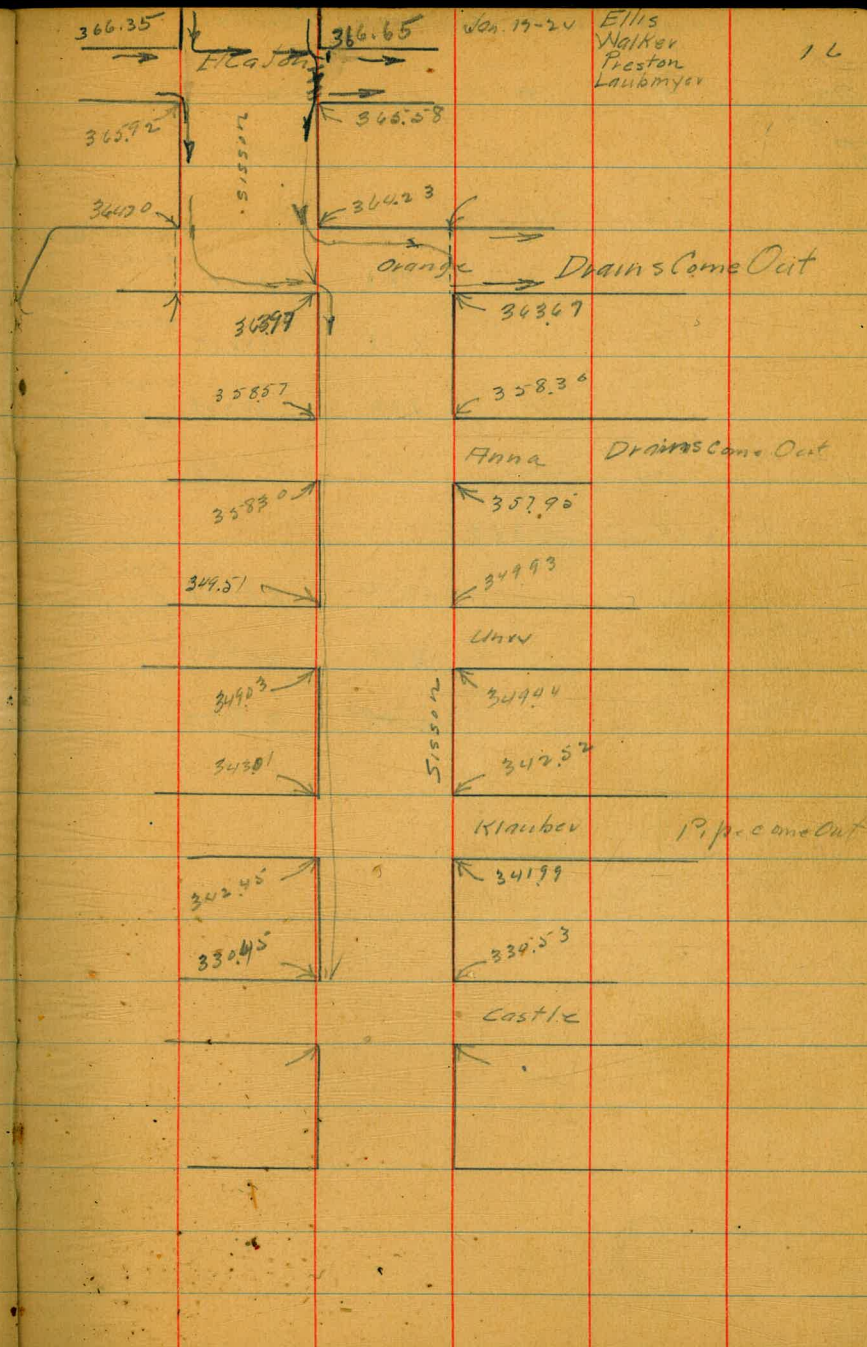 366.35
366.65
Jan. 19-20
Ellis
Walker
Preston
Laubmyer
365.92
Sisson
365.58
364.23
Orange
Drains Come Out
363.67
358.57
358.36
Anna
Drains come Out
358.30
357.95
349.51
349.93
Univ
349.03
Sisson
349.44
343.01
342.52
Klauber
Pipe come Out
342.45
341.99
330.45
330.53
Castle